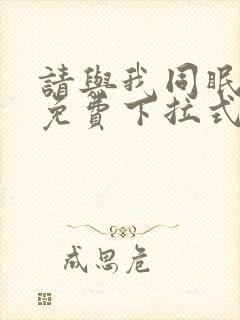 請與我同眠
免費下拉式
成思危